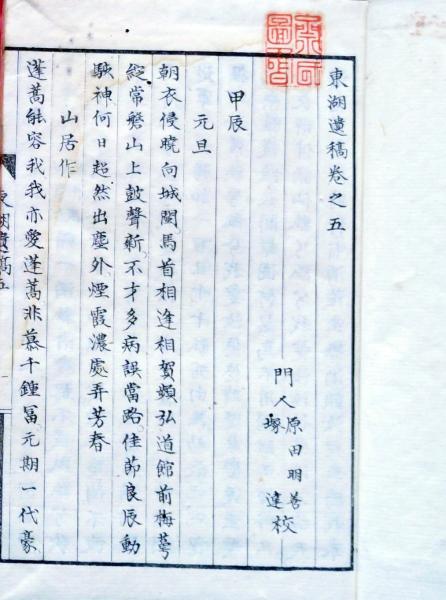 東湖遺稿卷之五
門人
原田明善
塚達校
甲辰
元旦
朝衣侵曉向城闉馬首相逢相賀頻弘道館前梅蕚
綻常磐山上鼓聲新不才多病誤當路佳節良辰動
駭神何日超然出塵外煙霞濃處弄芳春
山居作
蓬蒿能容我我亦愛蓬蒿非慕千鍾冨元期一代豪
東湖遺稿五
一